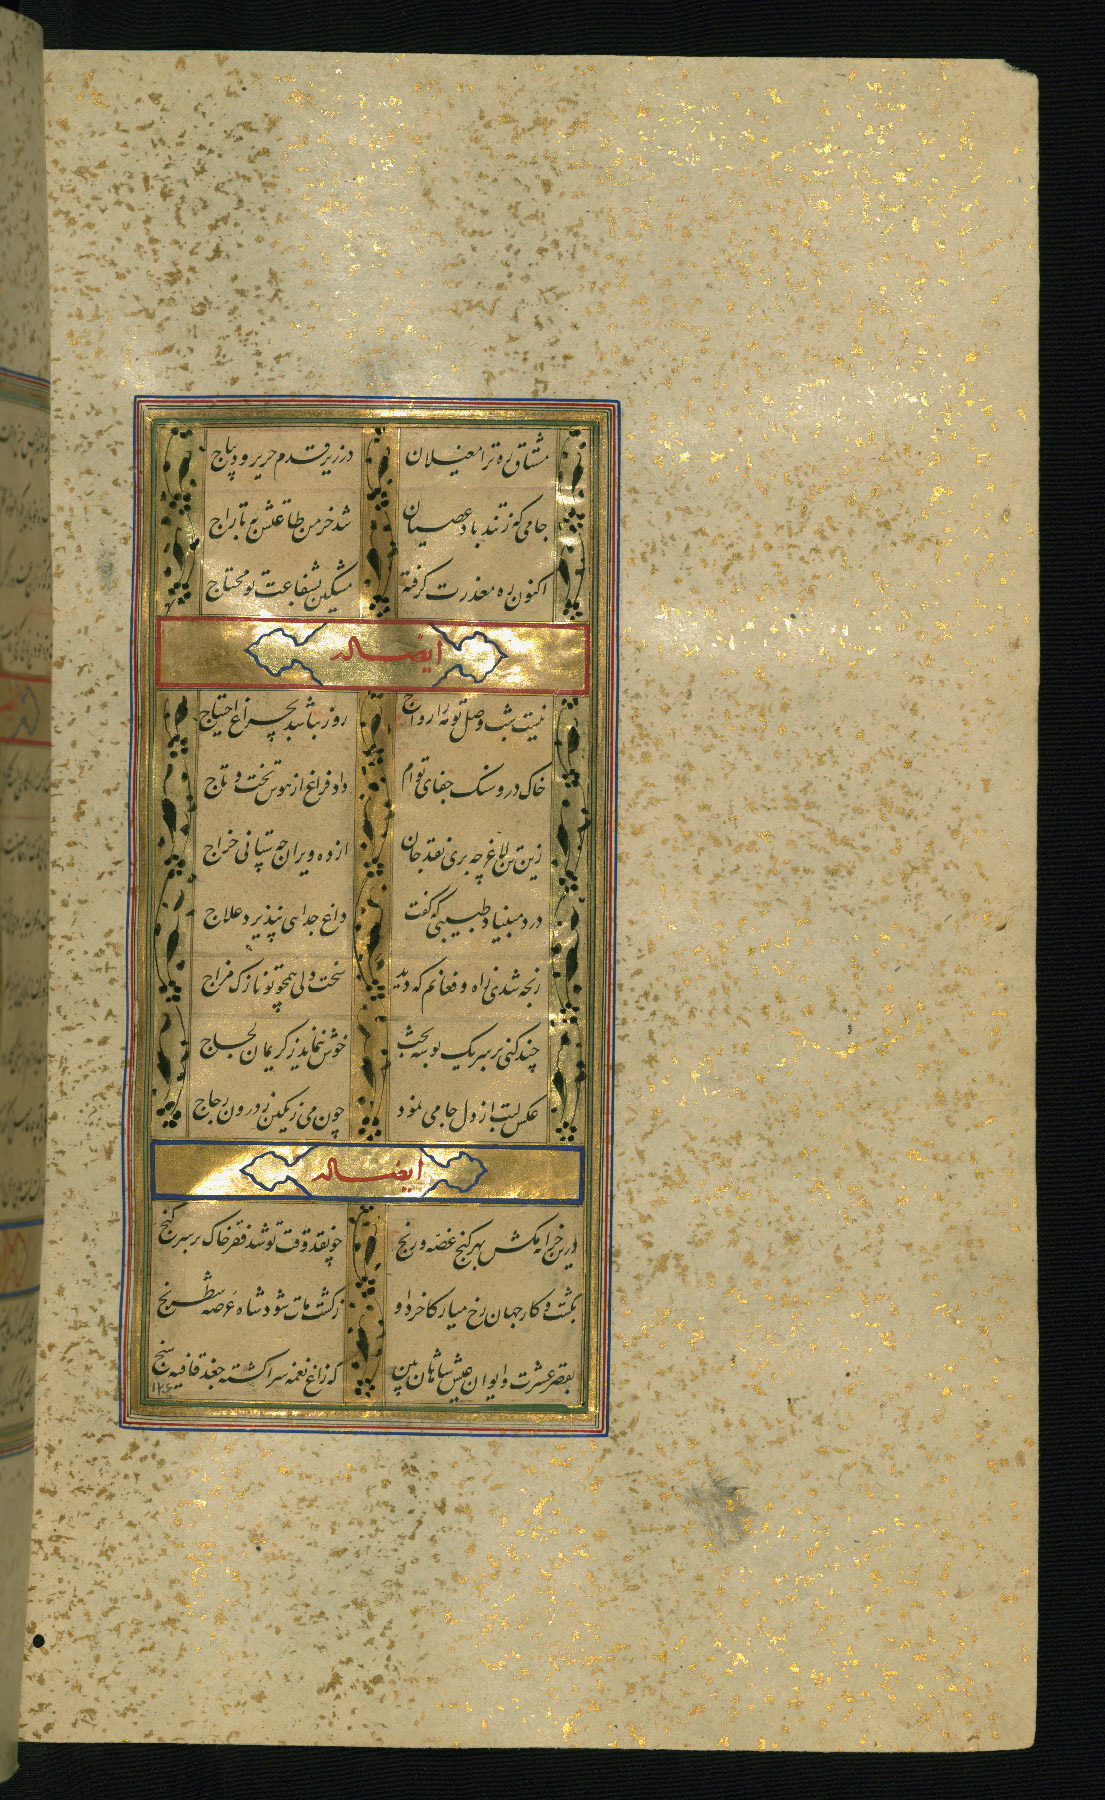 مشتاق ره ترا مغیلان در زیر قدم حریر و دیباج
جامی که ز تندباد عصیان شد خرمن طاعتش به تاراج
اکنون ره معذرت گرفته مسکین بشفاعت تو محتاج
ایضا له
نیست شب وصل تو مه را رواج روز نباشد بچراغ احتیاج
خاک در و سنک جفای توام داد فراغ از هوس تخت و تاج
زین تن لاغر چه بری نقد جان از ده ویران چه ستانی خراج
درد مبیناد طبیبی که گفت داغ جدایی نپذیرد علاج
رنجه شدی ز اه و فغانم که دید سخت دلی همچو تو نازک مزاج
چند کنی بر سر یک بوسه بحث خوش ننماید ز کریمان لجاج
عکس لبت از دل جامی نمود چون می رنکین ز درون زجاج
ایضا له
درین خرابه مکش بهر کنج غصه و رنج چو نقد وقت تو شد فقر خاک بر سر کنج
بکشت و کار جهان رخ میار کاخر داو ز کشت مات شود شاه عرصه شطرنج
بقصر عشرت و ایوان عیش شاهان بین که زاغ نغمه سرا کشته جغد قافیه سنج